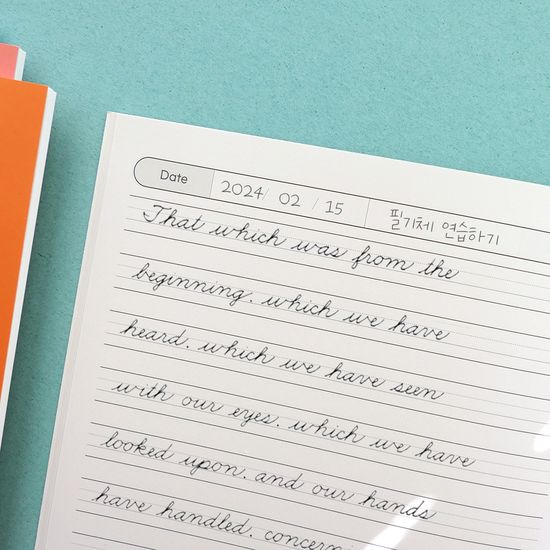 Date 2024/ 02 / 15 필기체 연습하기
That which was from the
beginning, which we have
heard, which we have seen
with our eyes, which we have
looked upon, and our hands
have handled, concerni